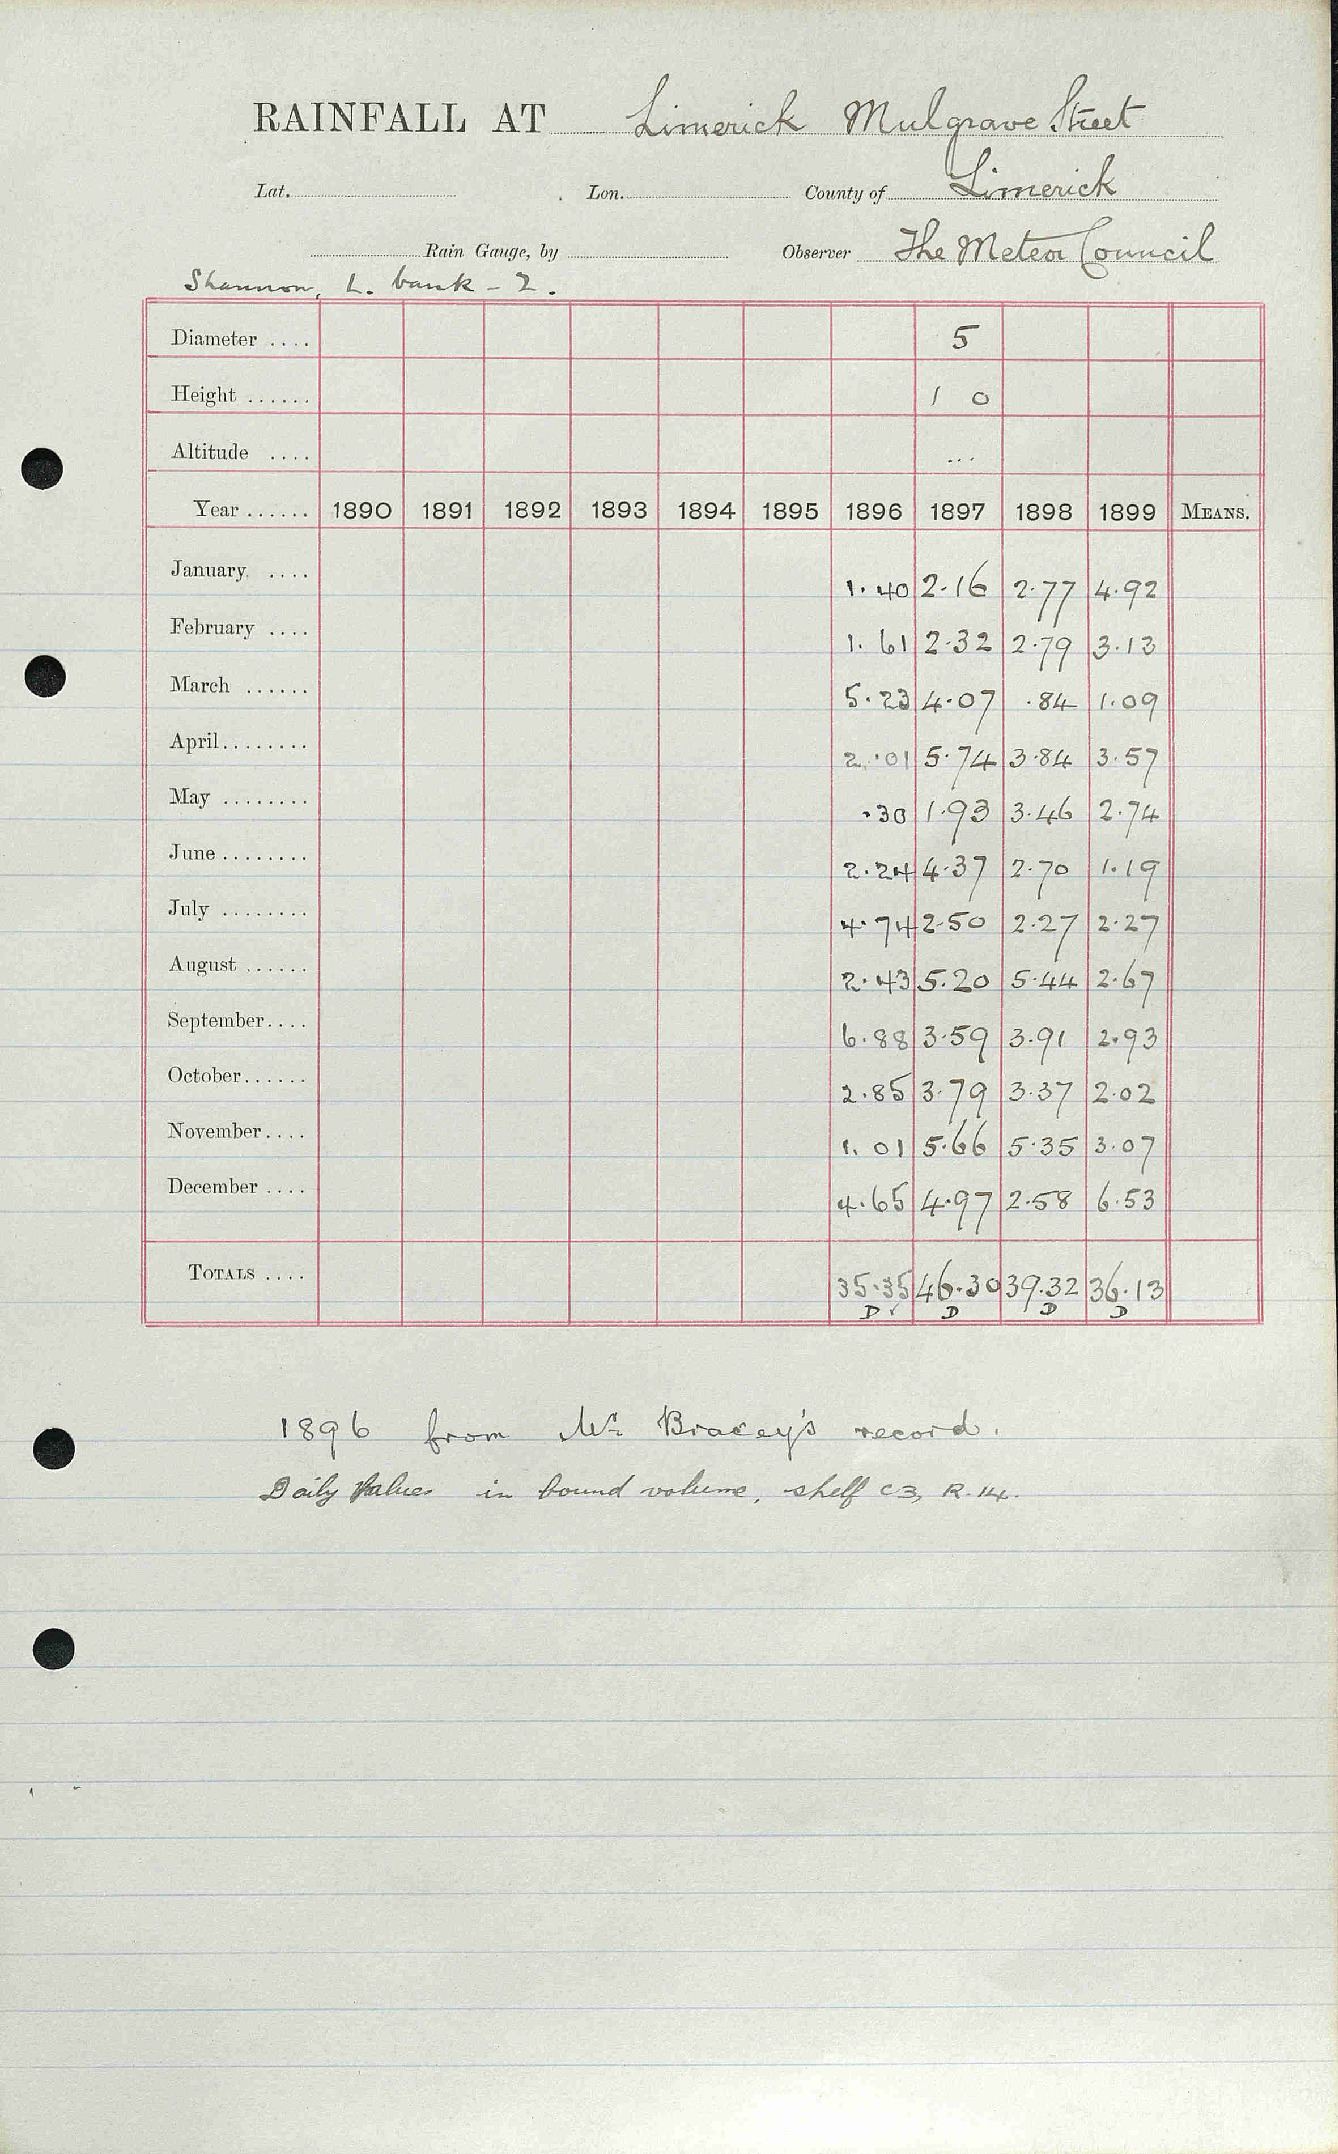 RAINFALL AT Limerick Mulgrave Street
Lat. Lon. County of Limerick
Rain Gauge, by Observer The Meteor Council
Shannon, L. bank - 2.
Diameter .... 5
Height ...... 1 0
Altitude .... ...
Year ...... 1890 1891 1892 1893 1894 1895 1896 1897 1898 1899 MEANS.
January .... 1.40 2.16 2.77 4.92
February .... 1.61 2.32 2.79 3.13
March ...... 5.23 4.07 .84 1.09
April ........ 2.01 5.74 3.84 3.57
May ........ .30 1.93 3.46 2.74
June ........ 2.24 4.37 2.70 1.19
July ........ 4.74 2.50 2.27 2.27
August ...... 2.43 5.20 5.44 2.67
September .... 6.88 3.59 3.91 2.93
October ...... 2.85 3.79 3.37 2.02
November .... 1.01 5.66 5.35 3.07
December .... 4.65 4.97 2.58 6.53
TOTALS .... 35.35 46.30 39.32 36.13
D ✓ D D D
1896 from Mr Bracey's record.
Daily Values in bound volume, shelf C3, R.14.